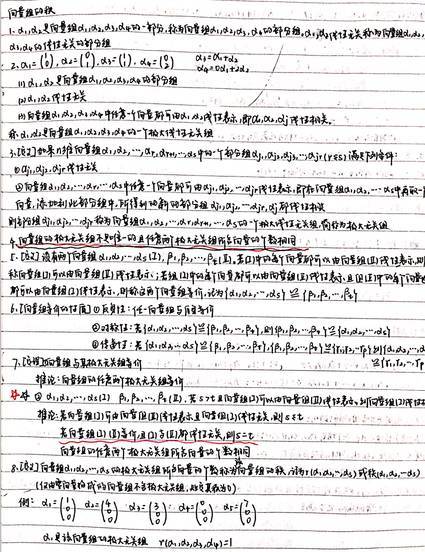 向量组的秩
1. α₁,α₂是向量组α₁,α₂,α₃,α₄的一部分,称为向量组α₁,α₂,α₃,α₄的部分组,α₁,α₂线性无关称为向量组α₁,α₂,
α₃,α₄的线性无关的部分组
2. α₁=(1 0), α₂=(0 1), α₃=(1 1), α₄=(0 2) α₃=α₁+α₂ α₄=0α₁+2α₂
(1) α₁,α₂是向量组α₁,α₂,α₃,α₄的部分组
(2) α₁,α₂线性无关
(3) 向量组α₁,α₂,α₃,α₄中任意一个向量都可由α₁,α₂线性表示,即α₁,α₂,αj线性相关。
称α₁,α₂是向量组α₁,α₂,α₃,α₄的一个极大线性无关组
3. [定义] 如果n维向量组α₁,α₂,…,αr,αr+₁,…,αs中的一个部分组αj₁,αj₂,αj₃,…,αjr(r≤s)满足下列条件:
①αj₁,αj₂,…αjr线性无关
②向量组α₁,α₂,…αr,…αs中任意一个向量都可由αj₁,αj₂,…αjr线性表示,即在向量组α₁,α₂,…αs中再取一
向量,添加到此部分组中,所得到的新的部分组αj₁,αj₂,…αjr,αj都线性相关
则部分组αj₁,αj₂,…αjr称为向量组α₁,α₂,…αr,αr+₁,…αs的一个极大线性无关组,简称为极大无关组
4. 向量组的极大无关组不是唯一的且任意两个极大无关组所含向量的个数相同
5. [定义] 设有两个向量组α₁,α₂,…αs(I), β₁,β₂,…βt(II),若(I)中的每个向量都可以由向量组(II)线性表示,则
称向量组(I)可以由向量组(II)线性表示;若组(I)中的每个向量都可以由向量组(II)线性表示,且组(II)中的每个向量
都可以由向量组(I)线性表示,则称这两个向量组等价,记为{α₁,α₂,…αs}≌{β₁,β₂,…βt}
6. [向量组等价的性质] ①反身性:任一向量组与自身等价
②对称性:若{α₁,α₂,…αs}≌{β₁,β₂,…βt},则{β₁,β₂,…βt}≌{α₁,α₂,…αs}
③传递性:若{α₁,α₂,…αs}≌{β₁,β₂,…βt},{β₁,β₂,…βt}≌{r₁,r₂,…rp}则{α₁,α₂,…αs}
≌{r₁,r₂,…rp
7. 向量组与其极大无关组等价
推论:向量组的任意两个极大无关组等价
② α₁,α₂,…αs(I) β₁,β₂,…βt(II), 若s>t且向量组(I)可以由向量组(II)线性表示,则向量组(I)线性相
推论:若向量组(I)可由向量组(II)线性表示且向量组(I)线性无关,则s≤t
若向量组(I)(II)等价,且(I)与(II)都线性无关,则s=t
向量组的任意两个极大无关组所含向量的个数相同
8. [定义] 向量组α₁,α₂,…αs的极大无关组所含向量的个数称为向量组的秩,记为r(α₁,α₂,…αs)或秩(α₁,α₂,…αs)
(仅由零向量组成的向量组不含极大无关组,故其秩为0)
例: α₁=(1 0 0) α₂=(4 0 0) α₃=(3 0 0) α₄=(7 0 0)
α₁是该向量组的极大无关组 r(α₁,α₂,α₃,α₄)=1